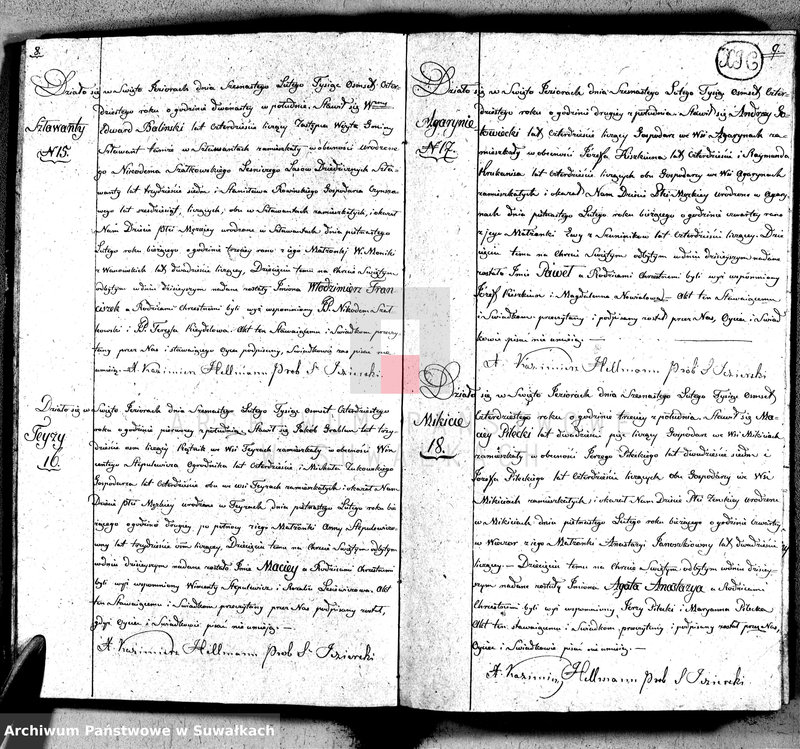 8.
Sztawanty
N 15.
Działo się w Święto Jeziorach dnia Szesnastego Lutego Tysiąc Osmset Czter-
dziestego roku o godzinie dwunastej w południe. Stawił się
Edward Baliński lat Czterdzieści liczący Zastępca Wójta Gminy
Sztawant tamże w Sztawantach zamieszkały w obecności
go Nikodema Szatkowskiego Leśniczego Lasów Dziedzicznych Szta-
wanty lat trzydzieści siedm i Stanisława Rowińskiego Gospodarza
wego lat sześćdziesiąt, liczących, obu w Sztawantach zamieszkałych, i okazał
Nam Dziecię Płci Męzkiej urodzone w Sztawantach dnia piętnastego
Lutego roku bieżącego o godzinie trzeciej rano z jego Małżonki W. Moniki
z lat dwadzieścia liczącej, Dziecięciu temu na Chrzcie Świętym
odbytym w dniu dzisiejszym nadane zostały Imiona Włodzimierz Fran-
ciszek a Rodzicami Chrzestnemi byli wyż wspomniany P. Nikodem Szat-
kowski i P. Teressa Akt ten Stawaiącemu i Świadkom przeczy-
tany przez Nas i stawaiącego Oyca podpisany, Świadkowie zaś pisać nie
umieią. X. Kazimierz Hellmann Prob S. Jezierski
Teyzy
16.
Działo się w Święto Jeziorach dnia Szesnastego Lutego Tysiąc Osmset Czterdziestego
roku o godzinie pierwszej z południa. Stawił się Jakób Grablun lat trzy-
dzieści osm liczący Rątnik we Wsi Teyzach zamieszkały w obecności Win-
centego Stepulewicza Ogrodnika lat Czterdzieści i Michała Żukowskiego
Gospodarza lat Czterdzieści obu we wsi Teyzach zamieszkałych i okazał Nam
Dziecię Płci Męzkiej urodzone w Teyzach dnia piętnastego Lutego roku bie-
żącego o godzinie drugiej po północy z jego Małżonki Anny Stepulewiczo-
wny lat trzydzieści osm liczącej, Dziecięciu temu na Chrzcie Świętym odbytym
w dniu dzisiejszym nadane zostało Imie Maciey a Rodzicami Chrzestnemi
byli wyż wspomniany Wincenty Stepulewicz i Rozalia Akt
ten Stawaiącemu i Świadkom przeczytany przez Nas podpisany został,
gdyż Oyciec i Świadkowie pisać nie umieią. —
X. Kazimierz Hellmann Prob S. Jezierski
9
Agarynie
N 17.
Działo się w Święto Jeziorach dnia Szesnastego Lutego Tysiąc Osmset Czter-
dziestego roku o godzinie drugiej z południa. Stawił się Andrzej
lat Czterdzieści liczący Gospodarz we Wsi Agarynach za-
mieszkały w obecności Józefa Kierkiuna lat Czterdzieści i Raymunda
lat Czterdzieści liczących obu Gospodarzy we Wsi Agarynach
zamieszkałych i okazał Nam Dziecię Płci Męzkiej urodzone w Agary-
nach dnia piętnastego Lutego roku bieżącego o godzinie czwartej rano
z jego Małżonki Ewy z lat Czterdzieści liczącej. Dzie-
cięciu temu na Chrzcie Świętym odbytym w dniu dzisiejszym nadane
zostało Imie Paweł a Rodzicami Chrzestnemi byli wyż wspomniany
Józef Kierkiun i Magdalena Akt ten Stawaiącemu
i Świadkom przeczytany i podpisany został przez Nas, Oyciec i Świad-
kowie pisać nie umieią. —
X. Kazimierz Hellmann Prob S Jezierski
Mikicie
18.
Działo się w Święto Jeziorach dnia Szesnastego Lutego Tysiąc Osmset
Czterdziestego roku o godzinie trzeciej z południa. Stawił się Ma-
ciey Pilecki lat dwadzieścia pięć liczący Gospodarz we Wsi Mikiciach
zamieszkały w obecności Jerzego Pileckiego lat dwadzieścia siedm i
Józefa Pileckiego lat Czterdzieści liczących obu Gospodarzy we Wsi
Mikiciach zamieszkałych i okazał Nam Dziecię Płci Żenskiej urodzone
w Mikiciach dnia piętnastego Lutego roku bieżącego o godzinie czwartej
w Wieczor z jego Małżonki Anastazyi Janoszkowny lat dwadzieścia
liczącej — Dziecięciu temu na Chrzcie Świętym odbytym w dniu dzisiej-
szym nadane zostały Imiona Agata Anastazya a Rodzicami
Chrzestnemi byli wyż wspomniony Jerzy Pilecki i Maryanna Pilecka
Akt ten stawaiącemu i Świadkom przeczytany i podpisany został przez Nas,
Oyciec i Świadkowie pisać nie umieią. —
X. Kazimierz Hellmann Prob S Jezierski
Archiwum Państwowe w Suwałkach